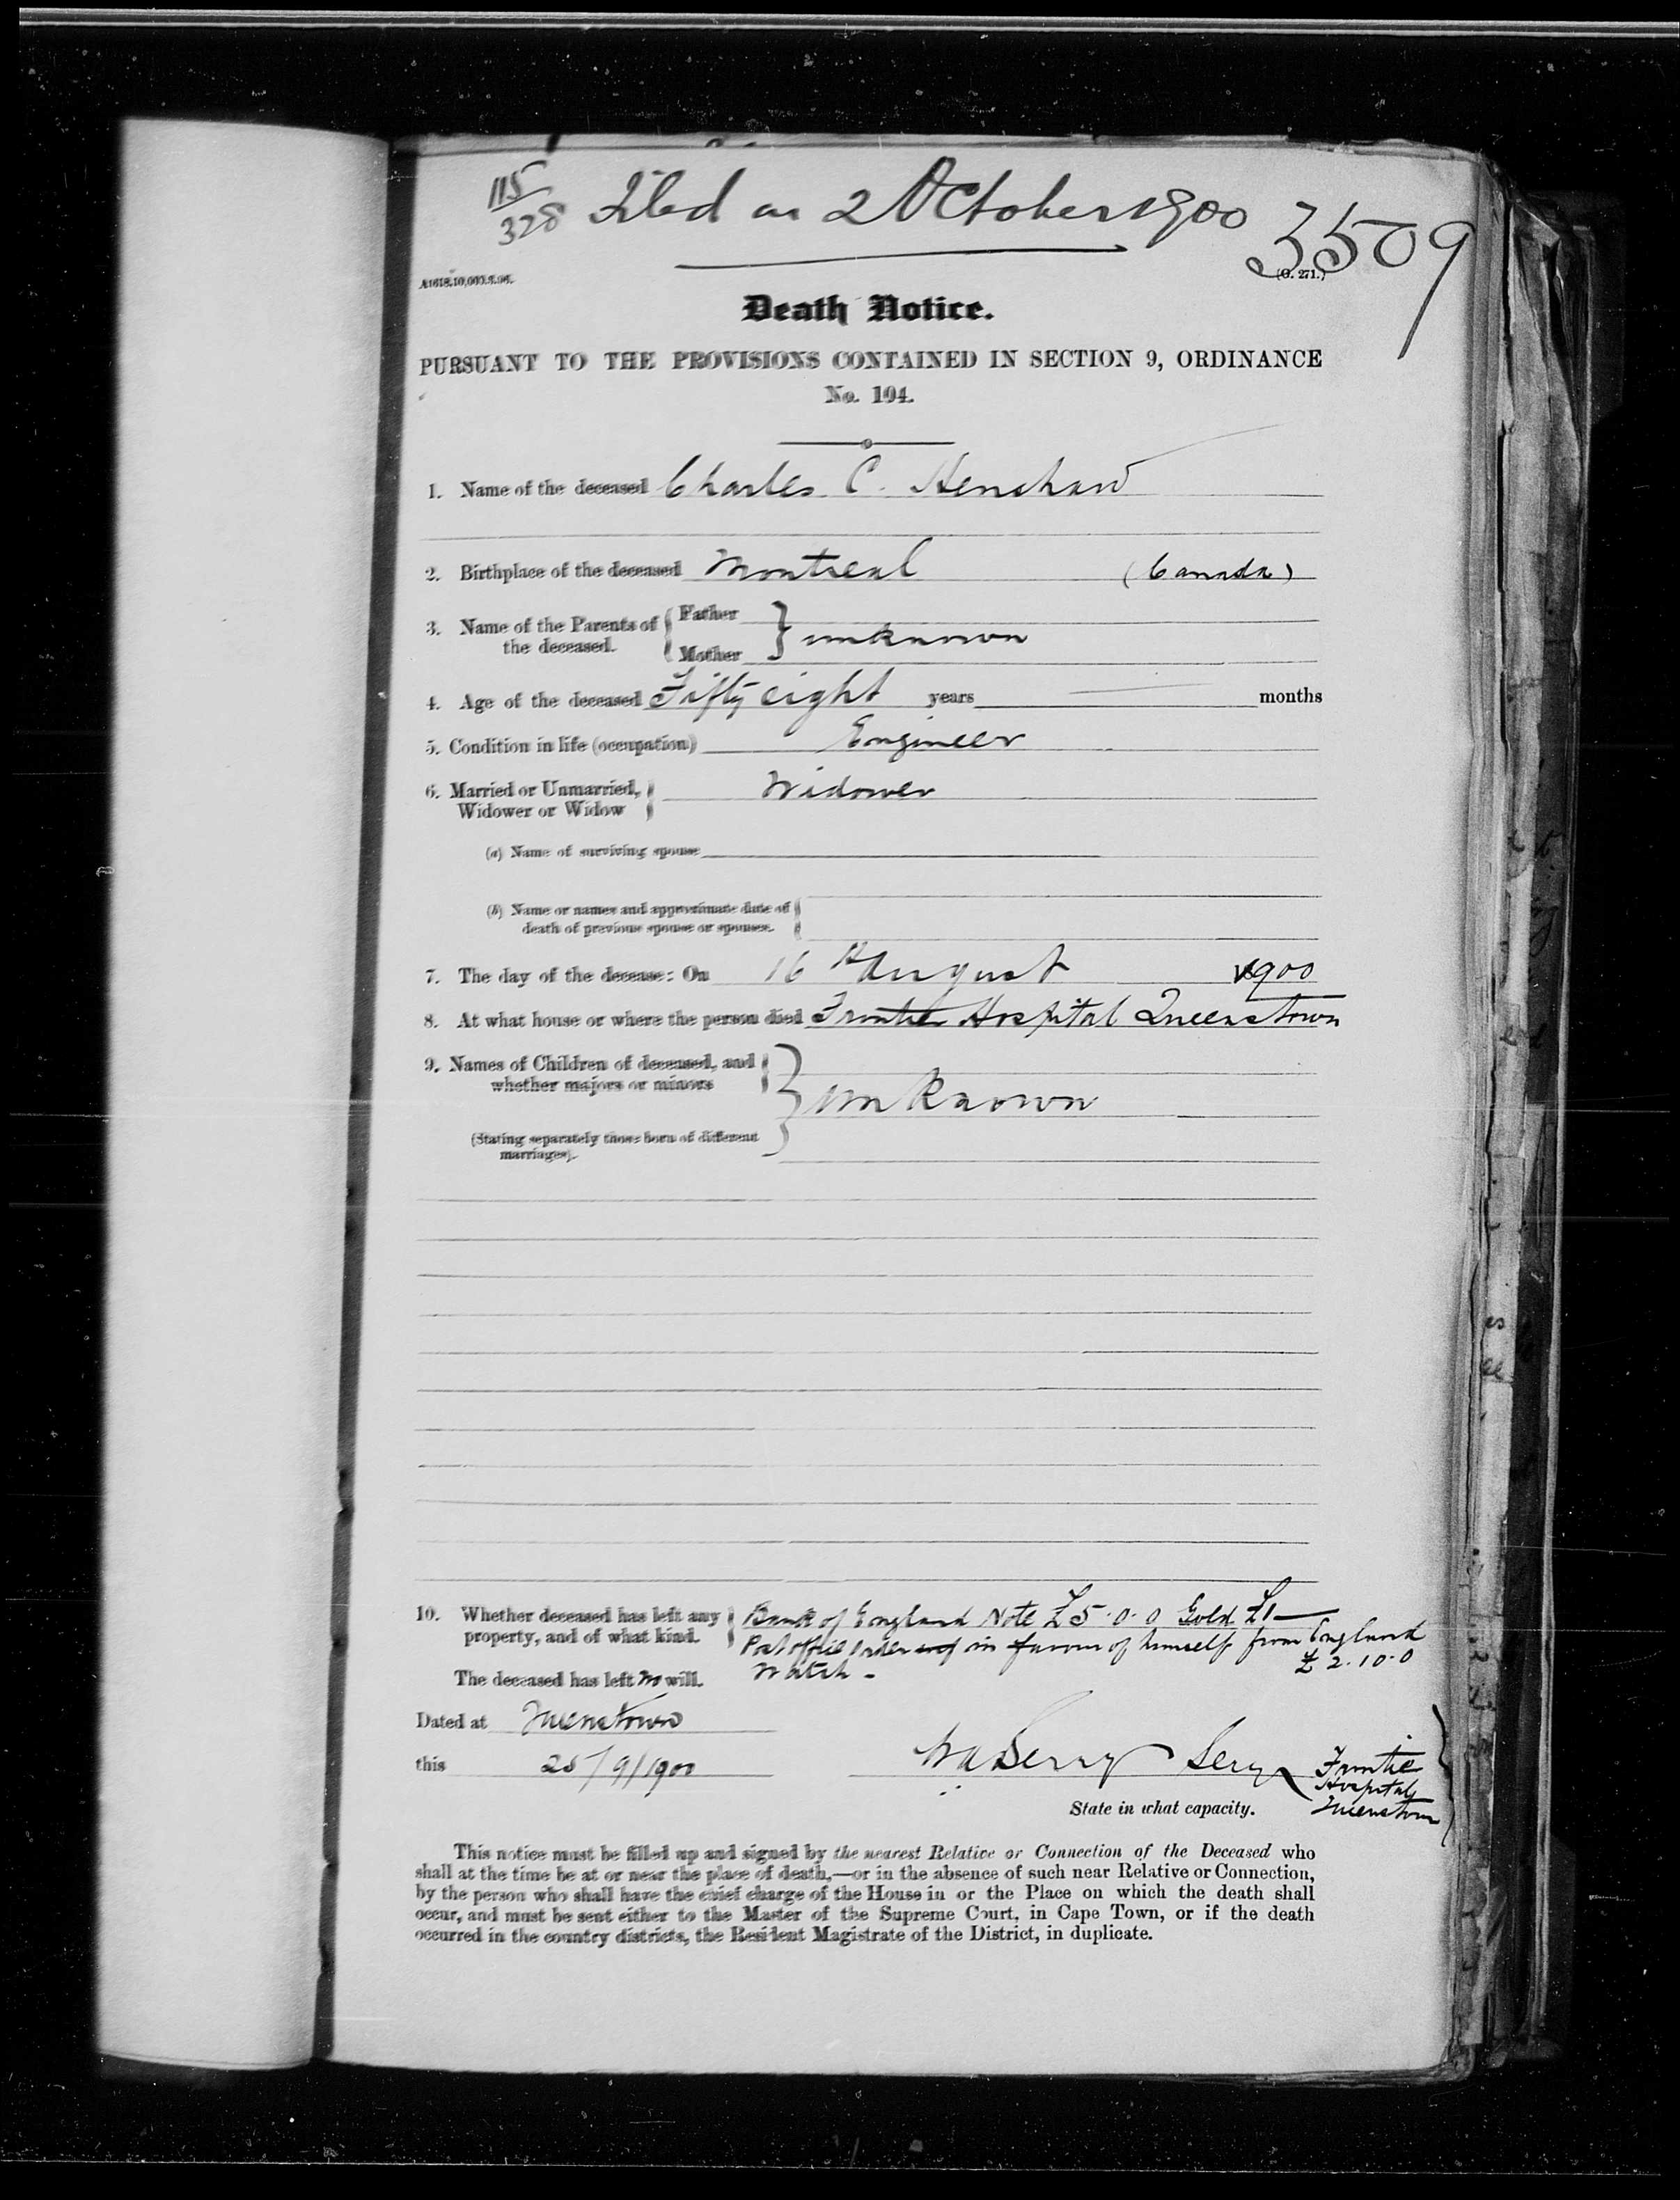 115/328 Filed on 2 October 1900 3509
A1618.10,000.3.96. (G. 271.)
Death Notice.
PURSUANT TO THE PROVISIONS CONTAINED IN SECTION 9, ORDINANCE
No. 104.
1. Name of the deceased Charles C. Henshaw
2. Birthplace of the deceased Montreal (Canada)
3. Name of the Parents of the deceased. { Father
Mother } unknown
4. Age of the deceased Fifty eight years — months
5. Condition in life (occupation) Engineer
6. Married or Unmarried, Widower or Widow } Widower
(a) Name of surviving spouse
(b) Name or names and approximate date of
death of previous spouse or spouses.
7. The day of the decease: On 16th August 1900
8. At what house or where the person died Frontier Hospital Queenstown
9. Names of Children of deceased, and
whether majors or minors } unknown
(Stating separately those born of different
marriages).
10. Whether deceased has left any } Bank of England Note £5.0.0 Gold £1—
property, and of what kind. Post office order in favour of himself from England
£2.10.0
The deceased has left no will. Watch -
Dated at Queenstown
this 25/9/1900 Berry Frontier
Hospital
State in what capacity. Queenstown
This notice must be filled up and signed by the nearest Relative or Connection of the Deceased who
shall at the time be at or near the place of death,—or in the absence of such near Relative or Connection,
by the person who shall have the chief charge of the House in or the Place on which the death shall
occur, and must be sent either to the Master of the Supreme Court, in Cape Town, or if the death
occurred in the country districts, the Resident Magistrate of the District, in duplicate.